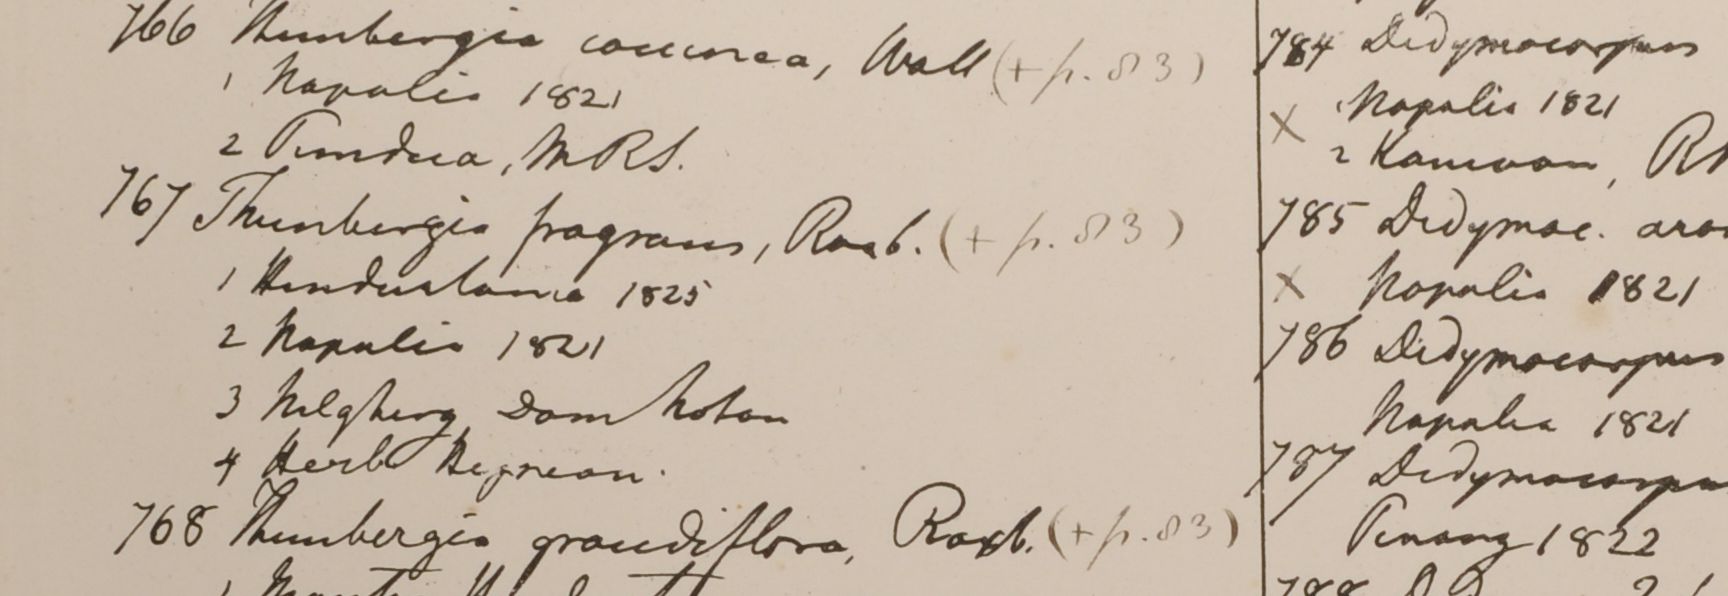 766 Thunbergia coccinea, Wall (+ p. 83)
1 Napalia 1821
2 Pundua, M R S.
767 Thunbergia fragrans, Roxb. (+ p. 83)
1 Hindustania 1825
2 Napalia 1821
3 Nilgherry Dom Noton
4 Herb Heynean.
768 Thunbergia grandiflora, Roxb. (+ p. 83)
784 Didymocarpus
1 Napalia 1821
X
2 Kamaon, R
785 Didymoc. aro
X Napalia 1821
786 Didymocarpus
Napalia 1821
787 Didymocarpu
Penang 1822
788